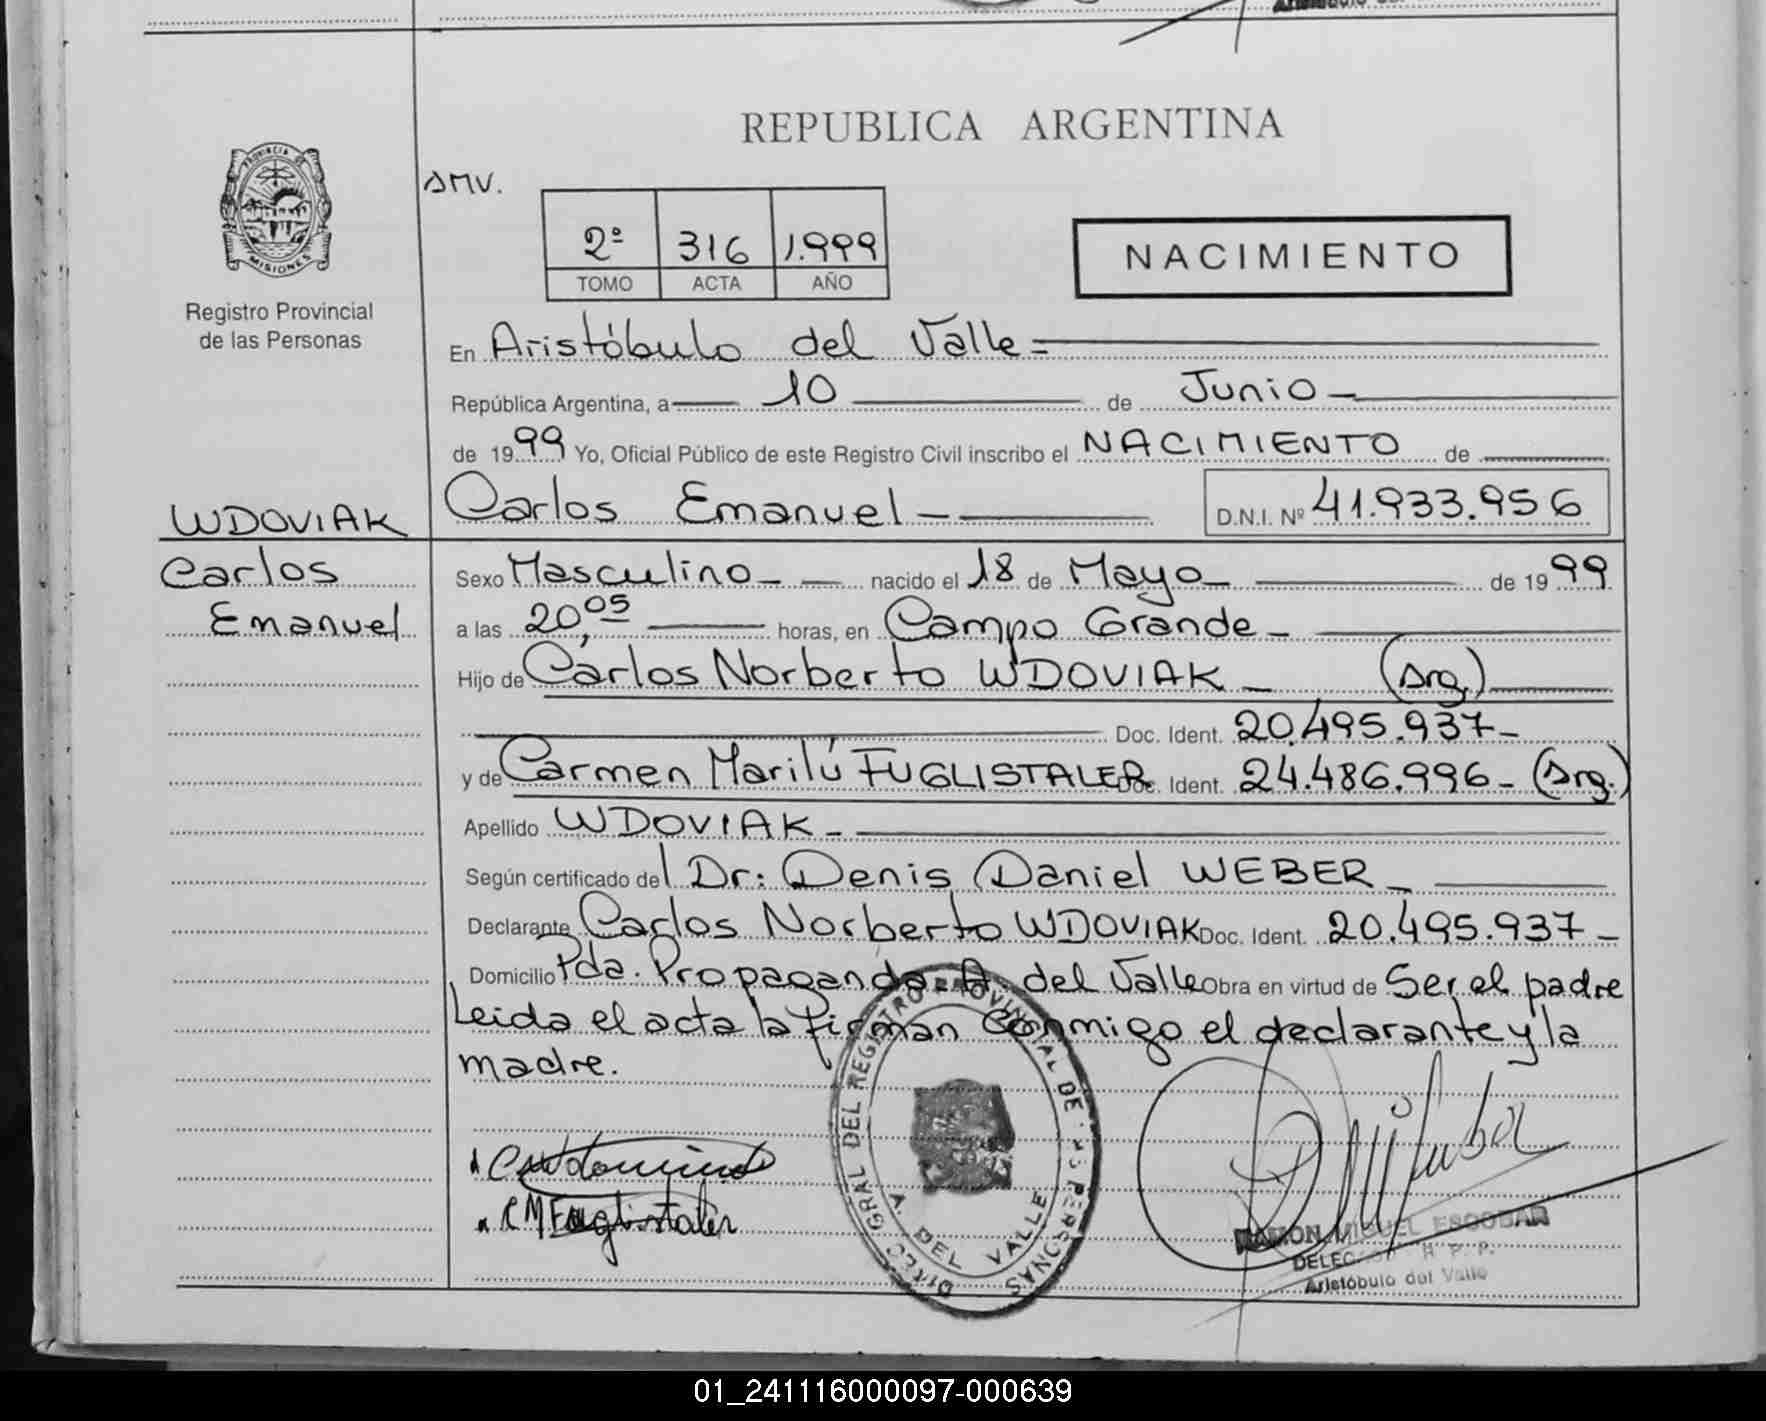 REPUBLICA ARGENTINA
PROVINCIA DE
MISIONES
Registro Provincial
de las Personas
SMV.
2º 316 1.999
TOMO ACTA AÑO
NACIMIENTO
En Aristóbulo del Valle=
República Argentina, a 10 de Junio
de 1999 Yo, Oficial Público de este Registro Civil inscribo el NACIMIENTO de
WDOVIAK Carlos Emanuel D.N.I. Nº 41.933.956
Carlos Sexo Masculino nacido el 18 de Mayo de 1999
Emanuel a las 20,05 horas, en Campo Grande
Hijo de Carlos Norberto WDOVIAK (Arg.)
Doc. Ident. 20.495.937
y de Carmen Marilú FUGLISTALER Doc. Ident. 24.486.996 (Arg.)
Apellido WDOVIAK
Según certificado del Dr: Denis Daniel WEBER
Declarante Carlos Norberto WDOVIAK Doc. Ident. 20.495.937
Domicilio Pda. Propaganda. A. del Valle Obra en virtud de Ser el padre
Leida el acta la firman conmigo el declarante y la
madre.
DIREC. GRAL DEL REGISTRO PROVINCIAL DE LAS PERSONAS
A. DEL VALLE
CM Fuglistaler
RAMON MIGUEL ESCOBAR
Aristóbulo del Valle
01_241116000097-000639